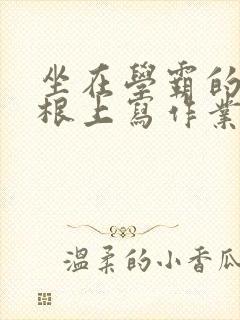 坐在學霸的
根上寫作業
溫柔的小香瓜